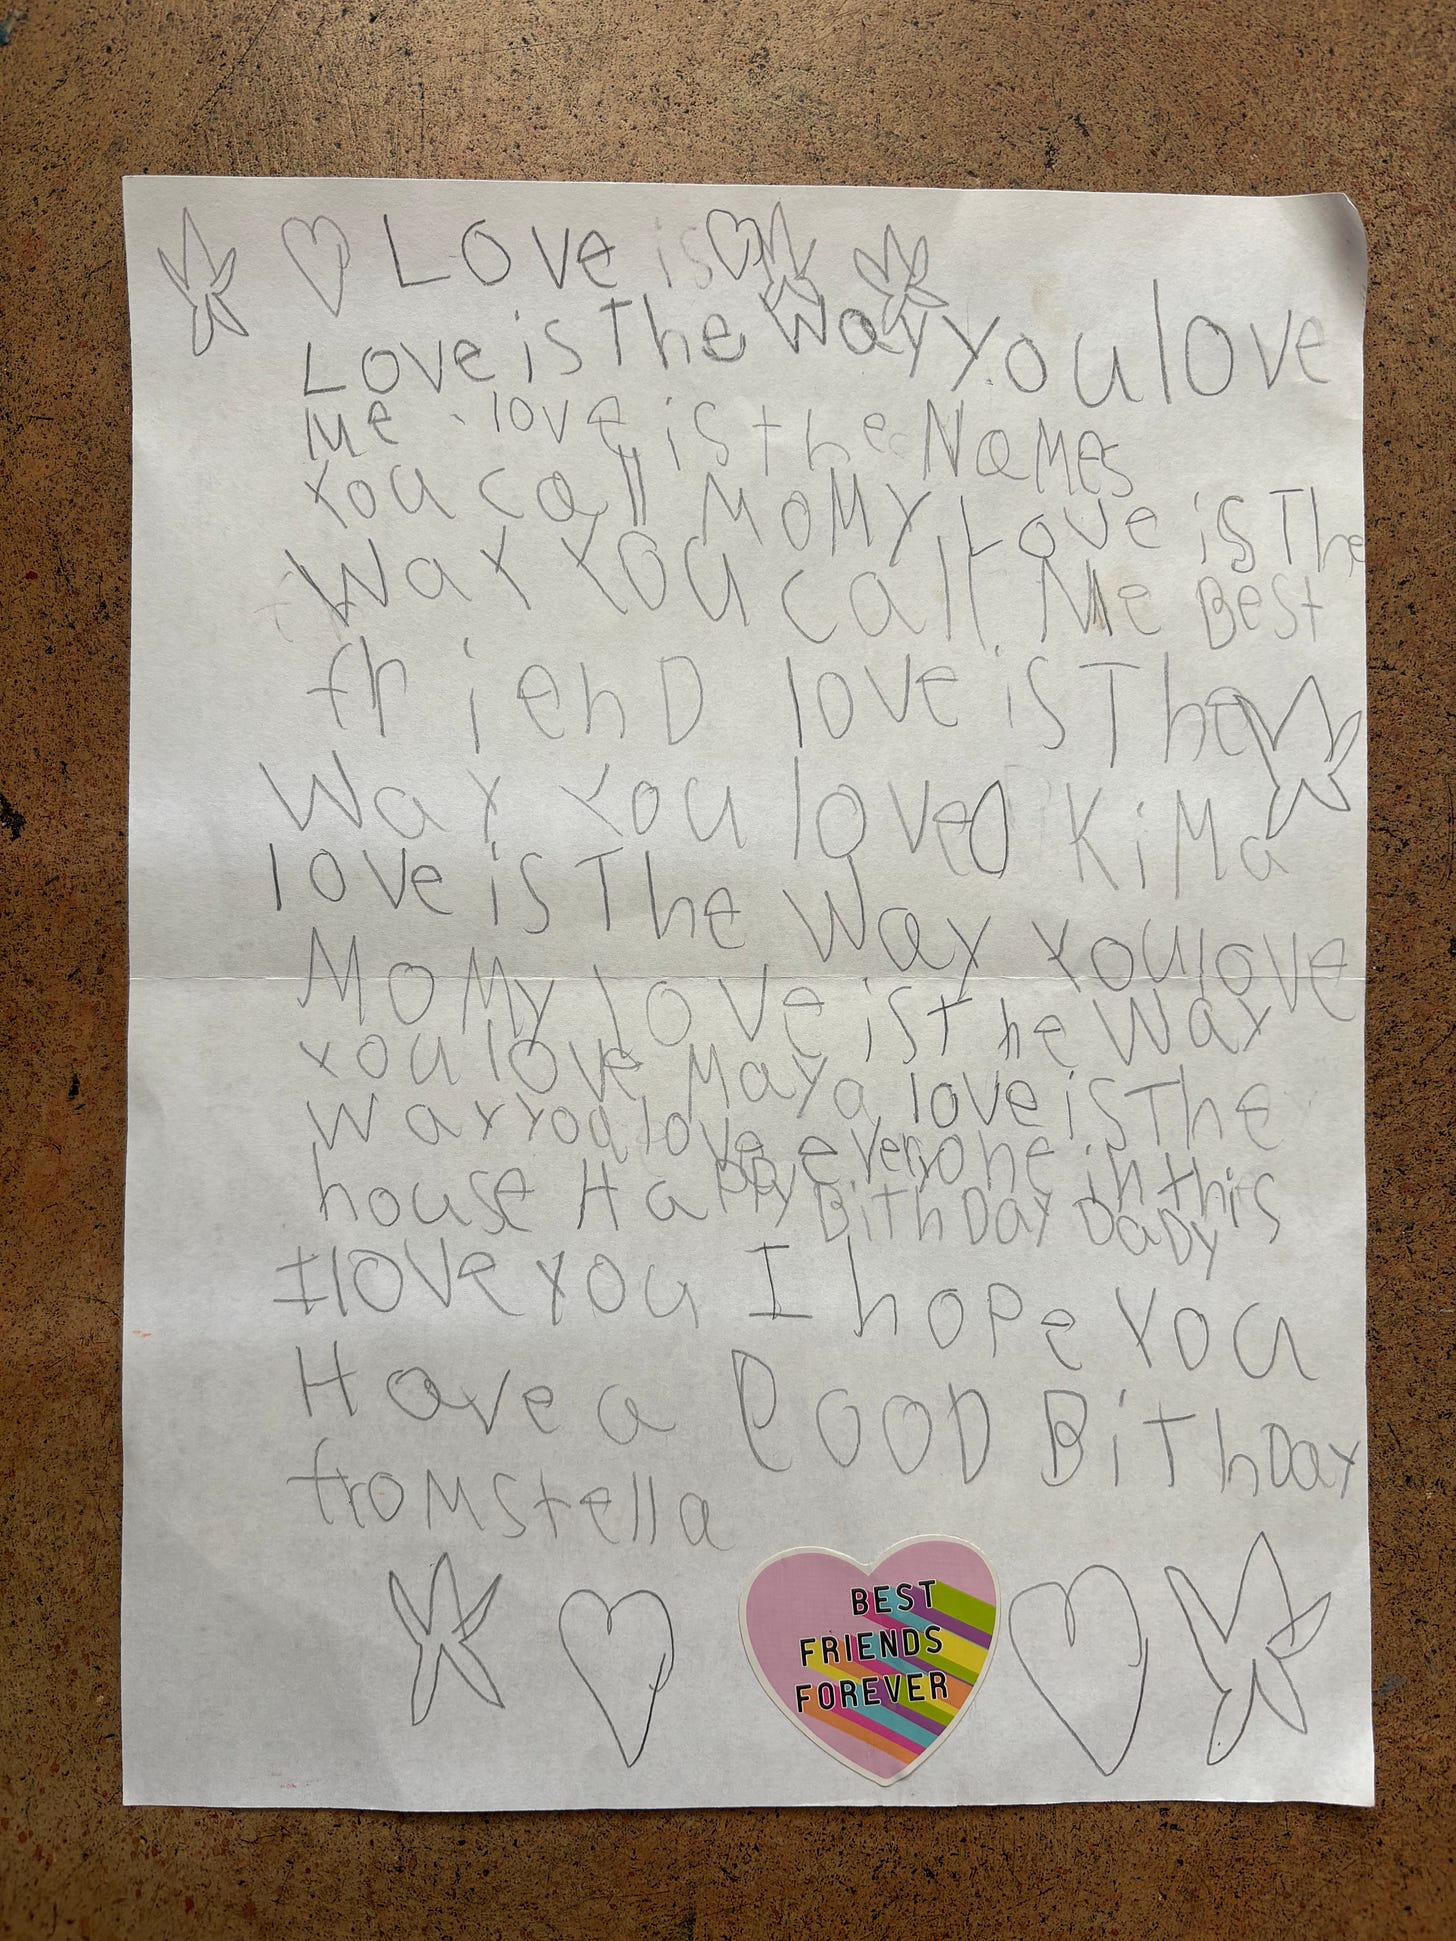 Love is
Love is The Way you love
Me love is the NaMes
You call MoMy Love is The
Way You call Me Best
frienD love is The
Way You loveD KiMa
love is The Way You love
MoMy love is The Way
You love Maya love is The
Way You love everyone in this
house Happy BithDay DaDy
I love you I hope You
Have a gooD BithDay
froM Stella
BEST
FRIENDS
FOREVER